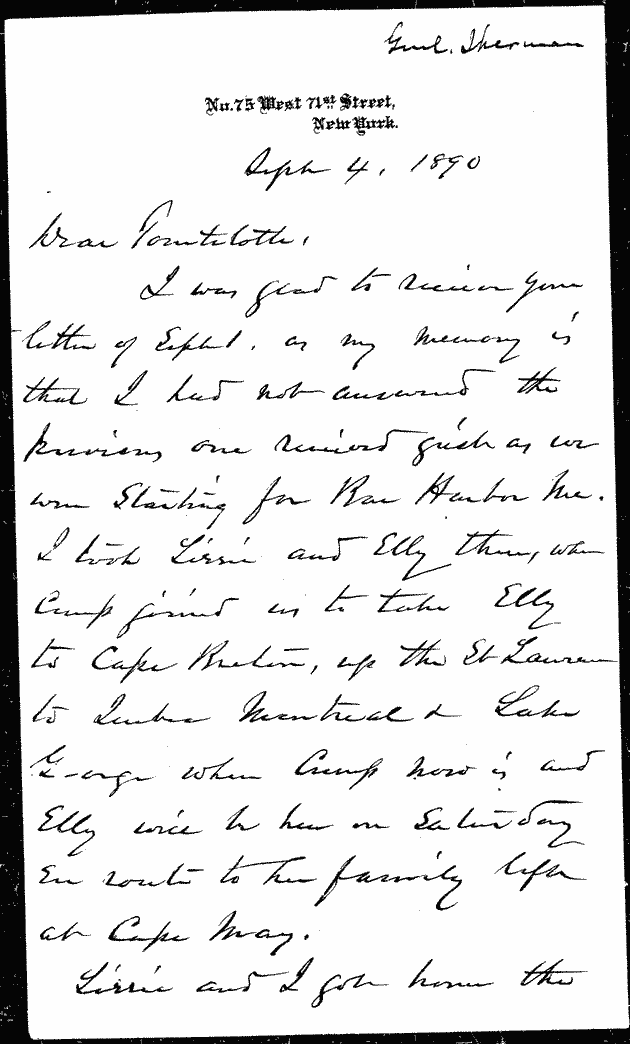 Genl. Sherman
No. 75 West 71st Street,
New York.
Sept 4, 1890
Dear Tourtelotte,
I was glad to receive your
letter of Sept 1. as my memory is
that I had not answered the
previous one received just as we
were Starting for Bar Harbor Me.
I took Lizzie and Elly there, when
Cump joined us to take Elly
to Cape Breton, up the St Lawrence
to Quebec Montreal & Lake
George where Cump now is and
Elly will be here on Saturday
En route to her family left
at Cape May.
Lizzie and I got home the